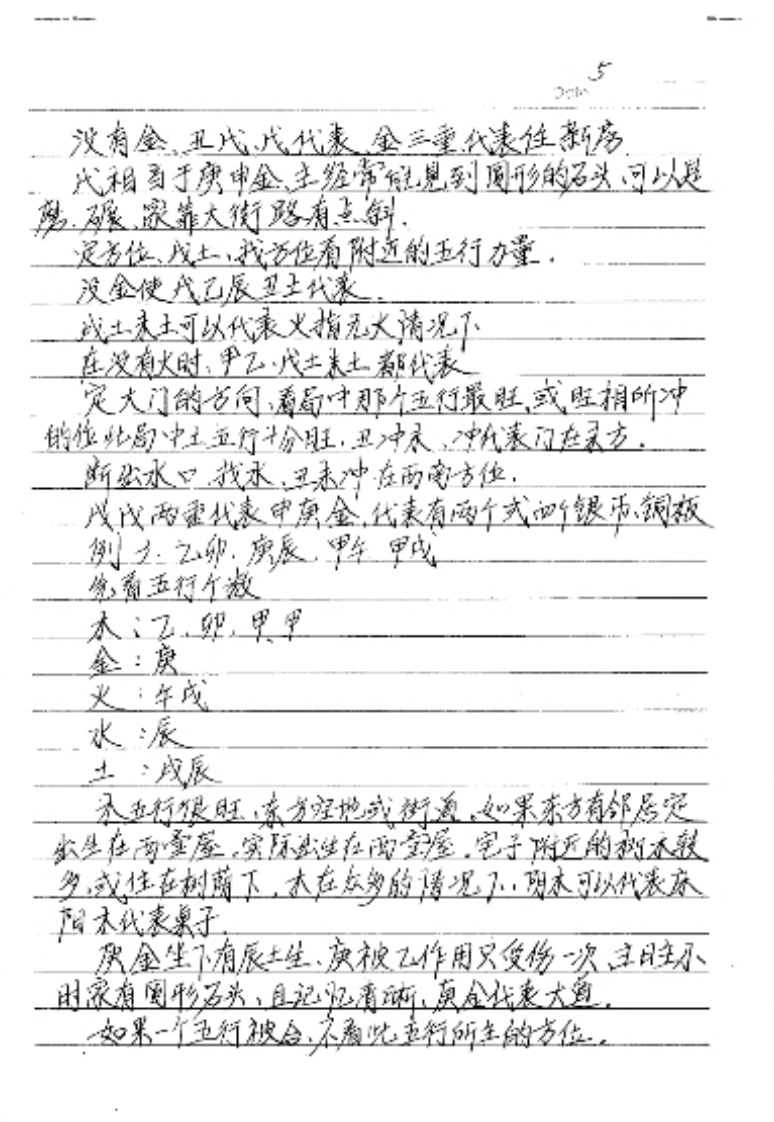 5
没有金、丑戊、戊代表金三重代表住新房
戊相当于庚申金、主经常能见到圆形的石头、可以是
磨、碾、家靠大街路有点斜.
定方位、戊土、找方位看附近的五行力量.
没金使戊己辰丑土代表.
戌土未土可以代表火指无火情况下
在没有火时、甲乙、戌土未土都代表
定大门的方向、看局中那个五行最旺、或旺相所冲
的位此局中土五行十分旺、丑冲未、冲代表门在未方.
断出水口、找水、丑未冲在西南方位.
戊戊两重代表申庚金、代表有两个或四个银币、铜板
例3. 乙卯. 庚辰. 甲午 甲戌
先看五行个数
木:乙、卯、甲、甲
金:庚
火:午戌
水:辰
土:戌辰
木五行很旺、东方空地或街道、如果东方有邻居定
出生在两重屋、实际出生在两重屋、宅子附近的树木较
多、或住在树荫下、木在众多的情况下、阴木可以代表床
阳木代表桌子.
庚金坐下有辰土生、庚被乙作用只受伤一次、主日主小
时家有圆形石头、且记忆清晰、庚金代表大道.
如果一个五行被合、不看此五行所主的方位.